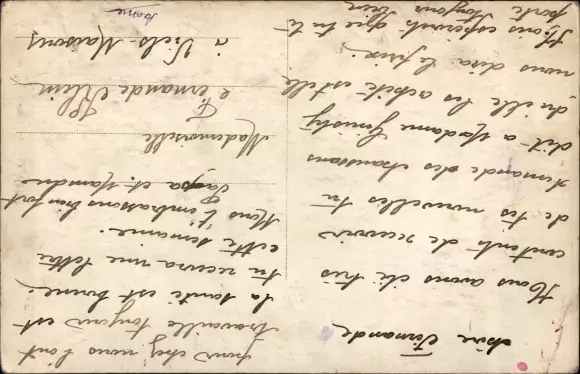 chère Fernande,
Nous avons été très
contents de recevoir
de tes nouvelles tu
demande des chaussons
dit a Madame
qu'ille les achète et elle
nous dira le prix.
Nous espérons que tu te
porte toujours bien
pour chez nous l'ont
travaille toujours est
la santé est bonne.
tu recevra une lettre
cette semaine.
Nous t'embrassons bien fort
papa et Maman
Mademoiselle
Fernande Klein
à Viels-Maisons
Aisne